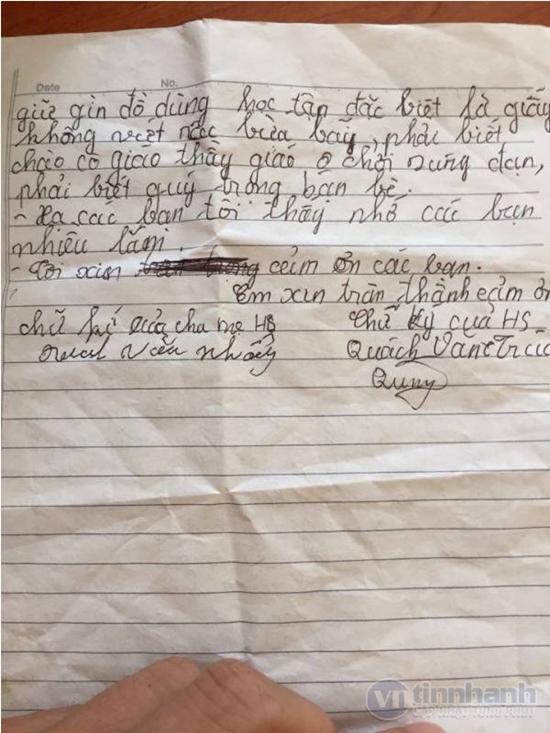 Date No.
giữ gìn đồ dùng học tận đặc biệt là giấy
không viết bừa bãy, phải biết
chào cô giáo thầy giáo
phải biệt quý trọng bạn bè.
- Xa các bạn tôi thấy nhớ các bạn
nhiều lắm.
- Tôi xin cảm ơn các bạn.
Em xin trân thành cảm ơn
chữ kí của cha mẹ HS
Chữ ký của HS
Quách Văn
vntinnhanh